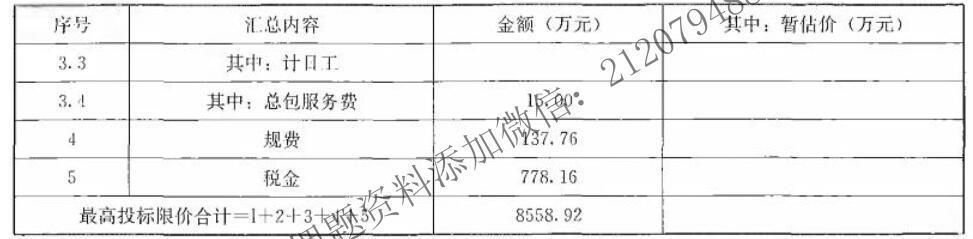 序号 汇总内容 金额（万元） 其中：暂估价（万元）
3.3 其中：计日工
3.4 其中：总包服务费 15.00
4 规费 137.76
5 税金 778.16
最高投标限价合计=1+2+3+4+5 8558.92
课题资料添加微信：21207948